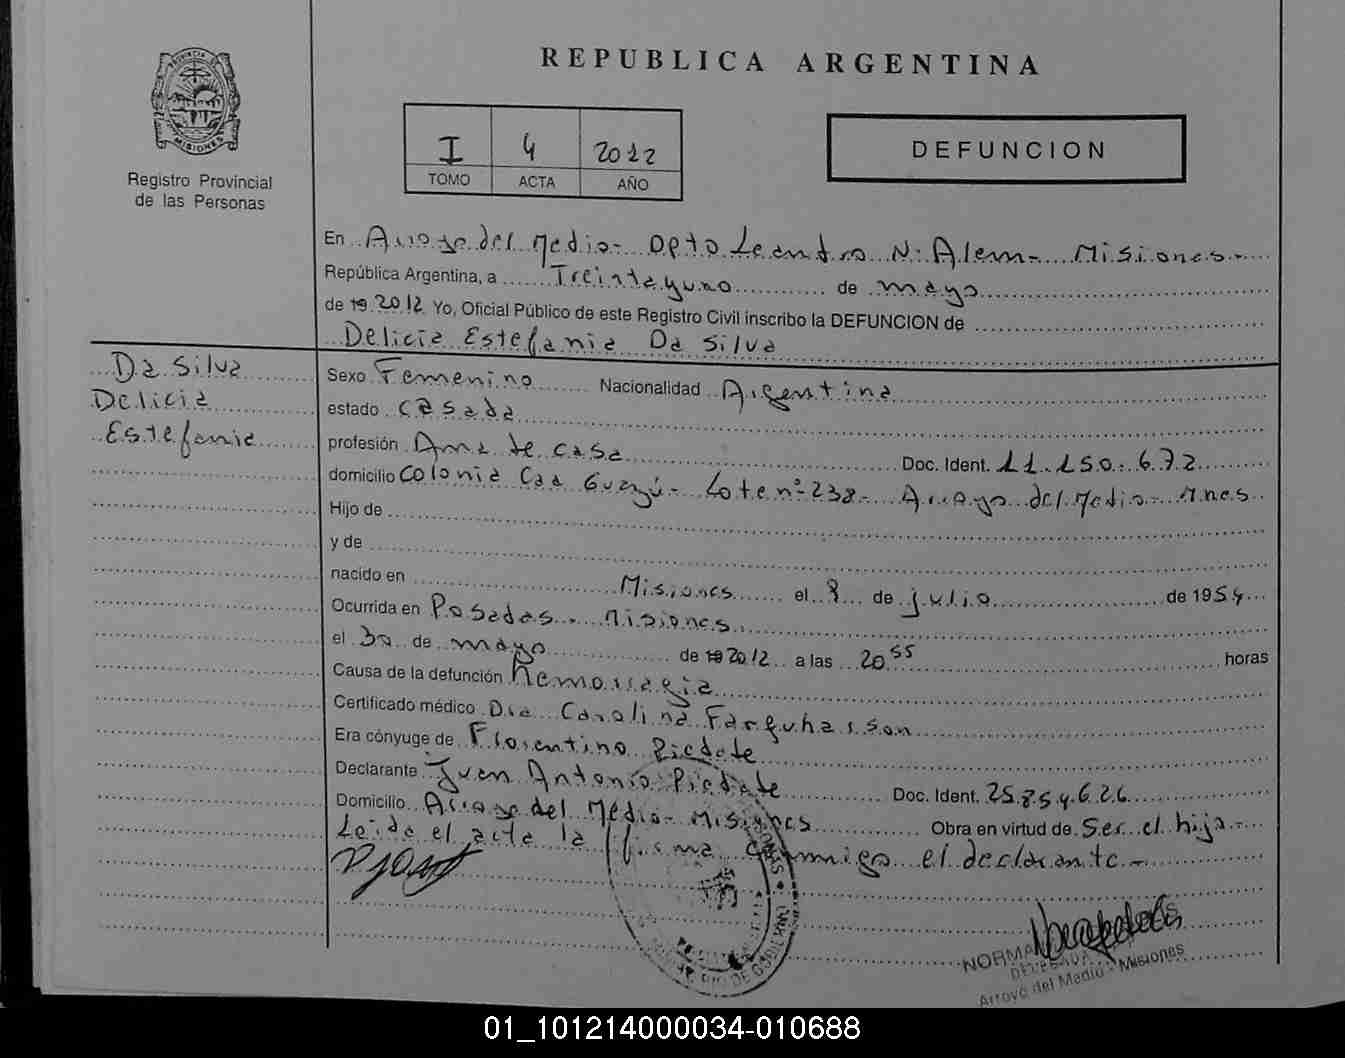 REPUBLICA ARGENTINA
PROVINCIA DE
MISIONES
Registro Provincial
de las Personas
I 4 2012
TOMO ACTA AÑO
DEFUNCION
En Arroyo del Medio- Dpto Leandro N. Alem- Misiones-
República Argentina, a Treinta y uno de mayo
de 19 2012 Yo, Oficial Público de este Registro Civil inscribo la DEFUNCION de
Delicia Estefania Da Silva
Da Silva
Delicia
Estefania
Sexo Femenino Nacionalidad Argentina
estado casada
profesión Ama de casa Doc. Ident. 11.150.672
domicilio Colonia Caa Guazú- Lote nº 238- Arroyo del Medio- Mnes
Hijo de
y de
nacido en Misiones el 8 de julio de 1954
Ocurrida en Posadas- Misiones.
el 30 de mayo de 19 2012 a las 20 55 horas
Causa de la defunción hemorragia
Certificado médico Dra Carolina Farquharsson
Era cónyuge de Florentino Piedate
Declarante Juan Antonio Piedate Doc. Ident. 25.854.626
Domicilio Arroyo del Medio- Misiones Obra en virtud de Ser el hijo-
Leida el acta la firma conmigo el declarante-
NORMA
DELEGADA
Arroyo del Medio - Misiones
01_101214000034-010688